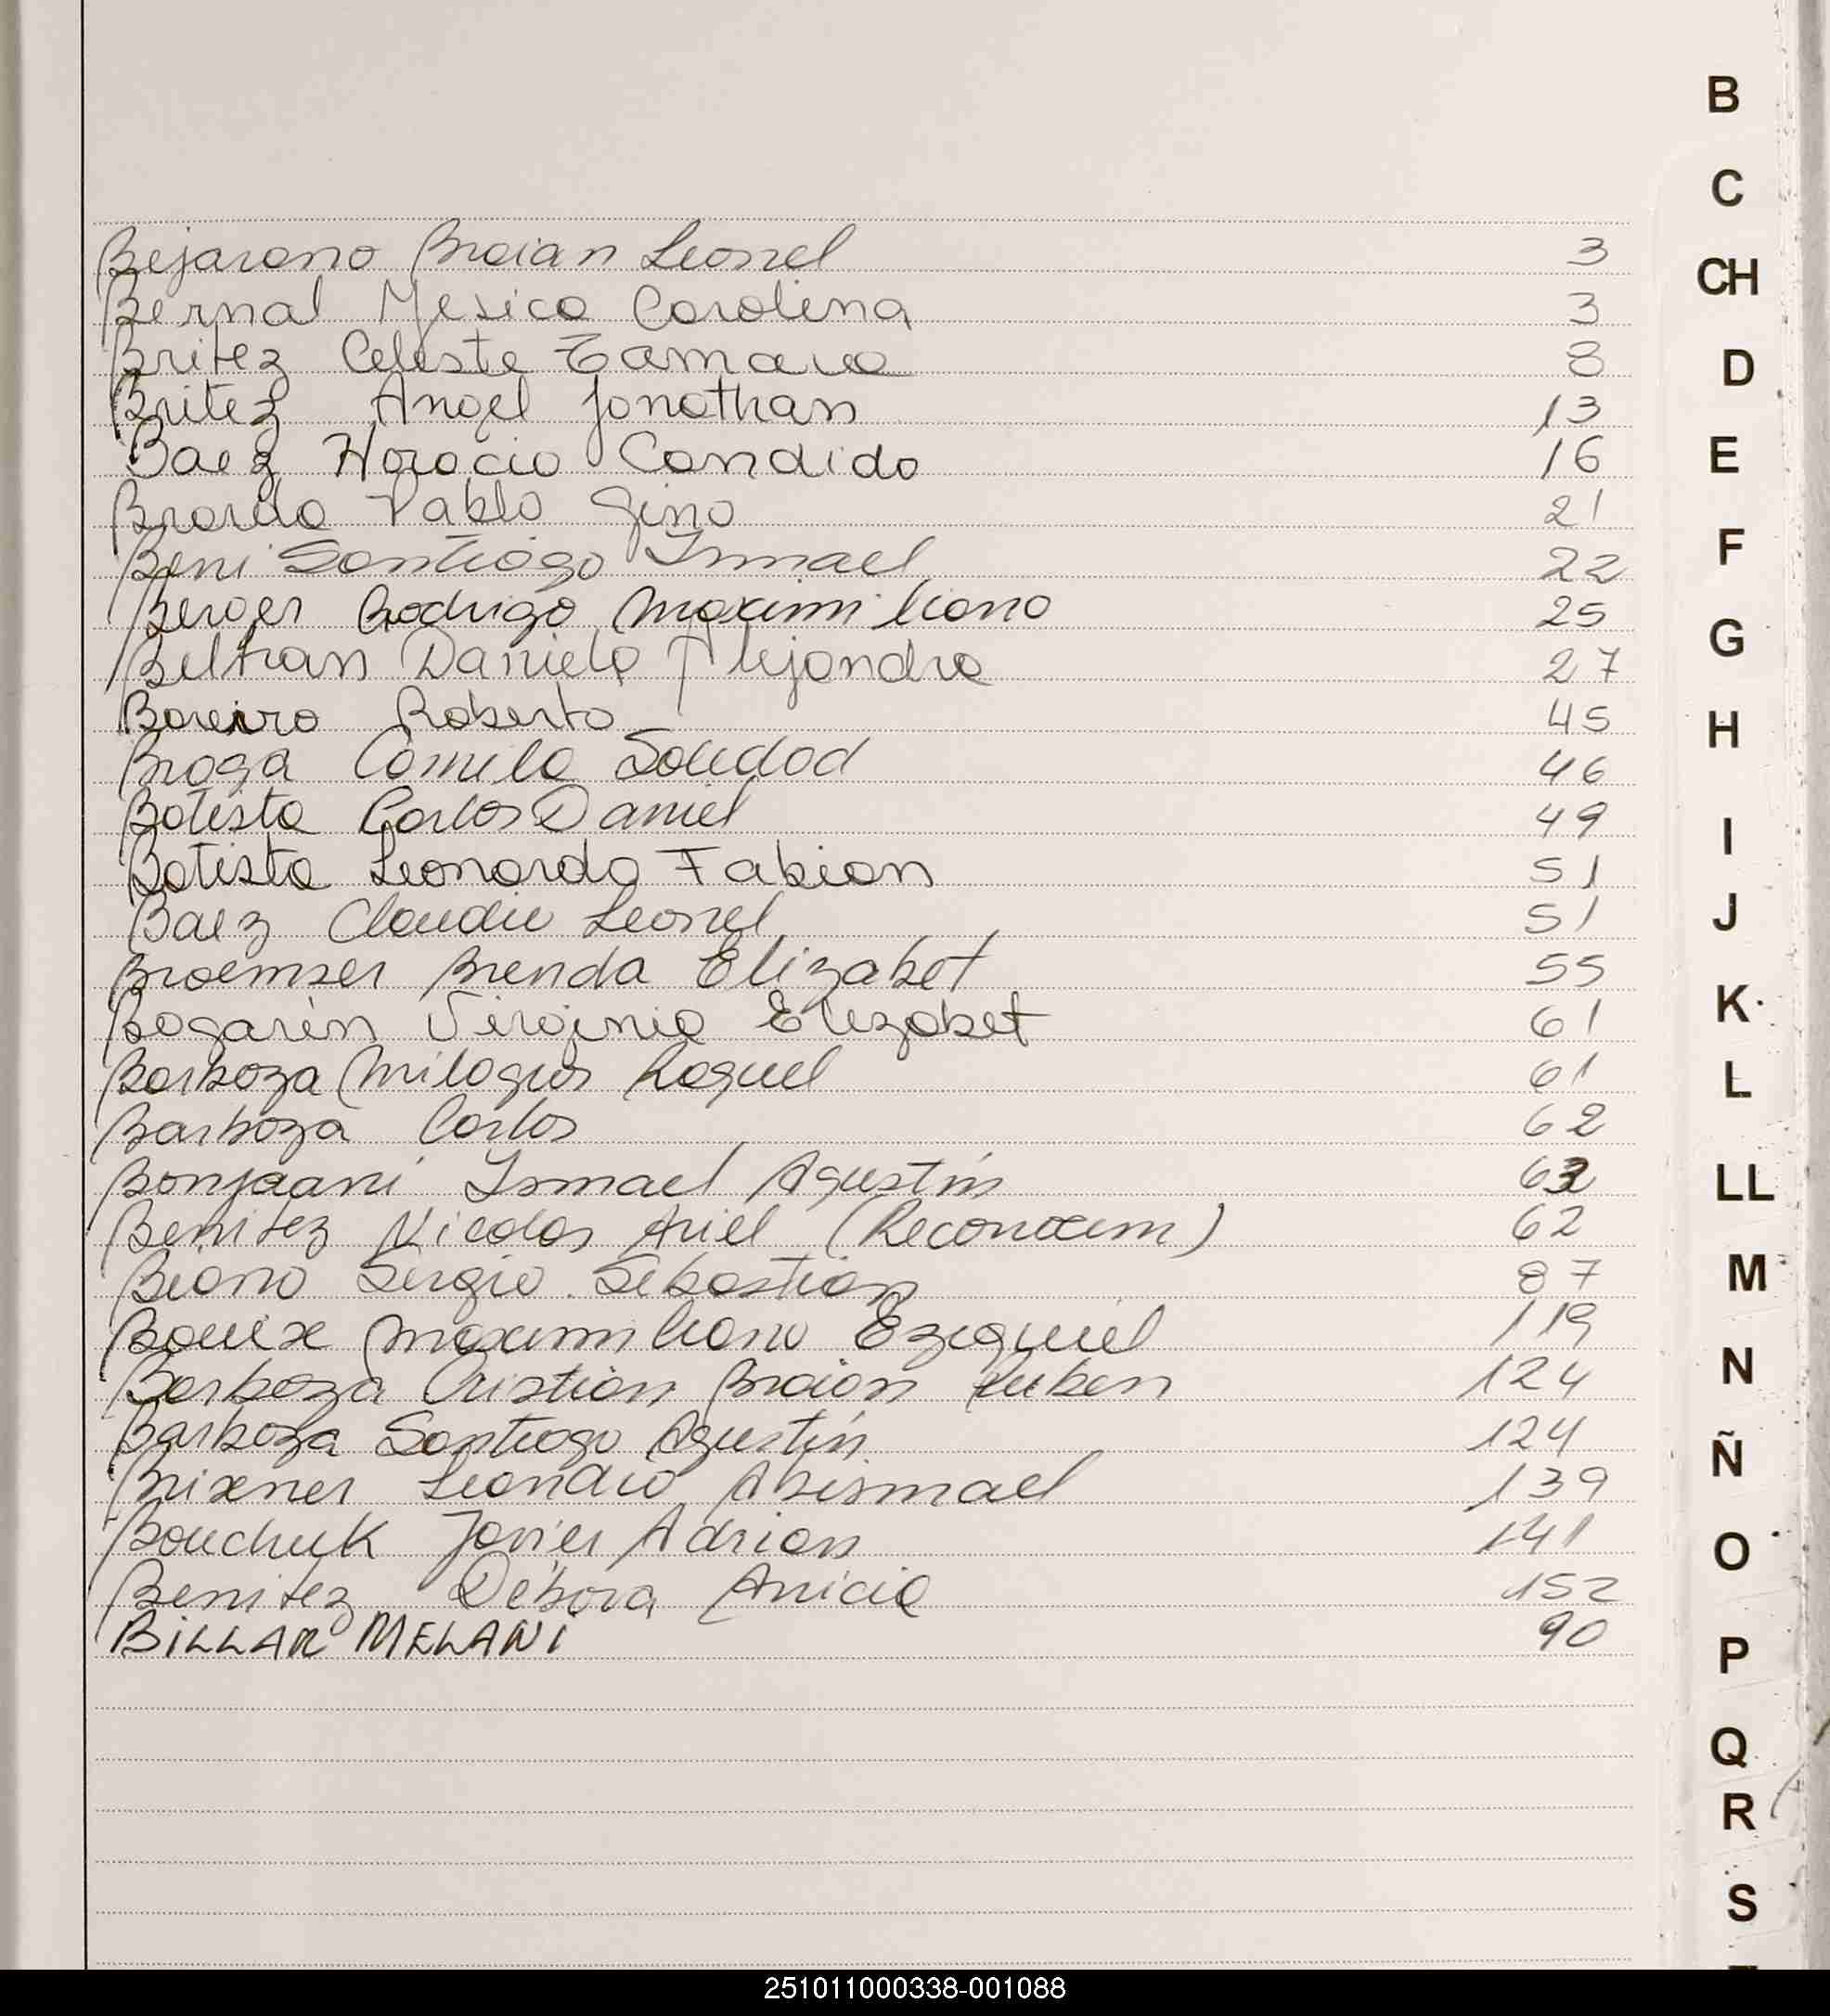 B
C
CH
D
E
F
G
H
I
J
K
L
LL
M
N
Ñ
O
P
Q
R
S
Bejarano Braian Leonel 3
Bernal Yesica Carolina 3
Britez Celeste Tamara 8
Britez Angel Jonathan 13
Baez Horacio Candido 16
Pablo Gino 21
Beni Santiago Ismael 22
Berger Rodrigo Maximiliano 25
Beltran Daniela Alejandra 27
Roberto 45
Braga Camila Soledad 46
Batista Carlos Daniel 49
Batista Leonardo Fabian 51
Baez Claudio Leonel 51
Broemser Brenda Elizabet 55
Bogarin Virginia Elizabet 61
Barboza Milagros Raquel 61
Barboza Carlos 62
Ismael Agustin
Benitez Nicolas Ariel 62
Sergio Sebastian 87
Maximiliano Ezequiel 119
Barboza Cristian Braian Ruben 124
Barboza Santiago Agustin 124
Brixner Abismael 139
Bouchuk Javier Adrian 141
Benitez Débora Anicia 152
BILLAR MELANI 90
251011000338-001088